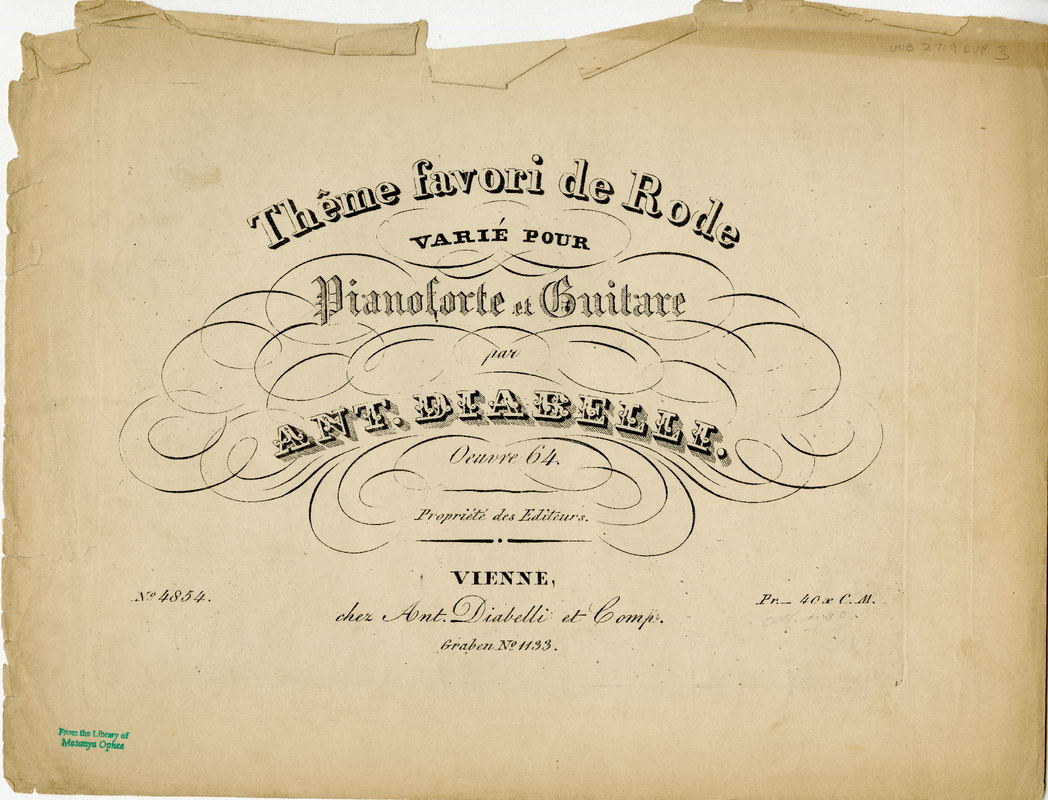 Thême favori de Rode
VARIÉ POUR
Pianoforte et Guitare
par
ANT. DIABELLI.
Oeuvre 64.
Propriété des Editeurs.
VIENNE,
Nº 4854.
Pr._ 40 x C. M.
chez Ant. Diabelli et Comp.
Graben Nº 1133.
From the Library of
Matanya Ophee